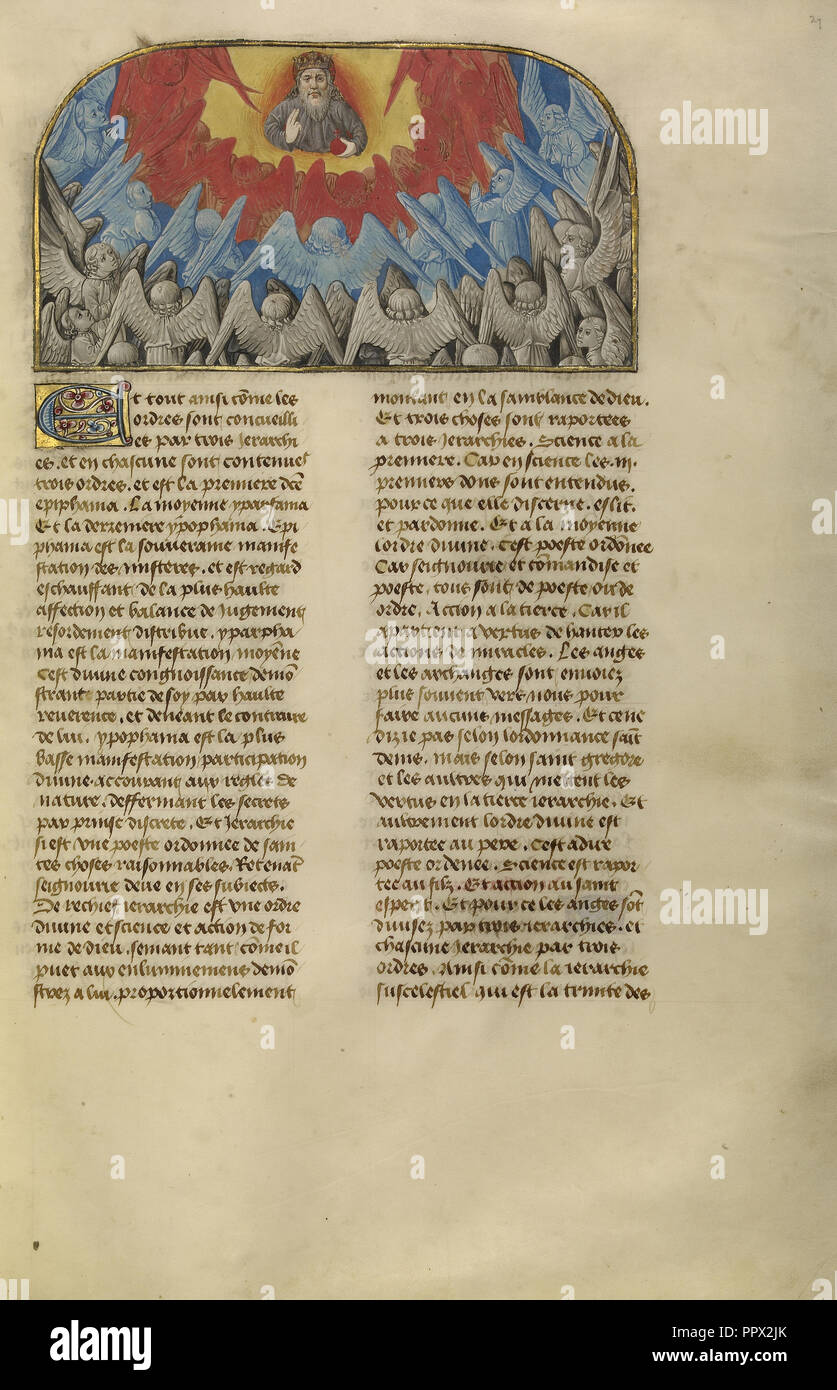 27
Et tout ainsi cõme les
ordres sont concueilli
es par trois Jerarchi
es. et en chascune sont contenues
trois ordres. et est la premiere dcẽ
epiphania. La moyenne yparfania
Et la derreniere ypophania. Epi
phania est la souveraine manife
station des misteres. et est regard
eschauffant de la plus haulte
affection et balance de Jugement
resordement distribue. yparpha
nia est la manifestation moyẽne
Cest divine congnoissance demõ
strant partie de soy par haulte
reuerence. et deneant le contraire
de lui. ypophania est la plus
basse manifestation participation
diuine. accourant aux regles de
nature. deffermant les secrets
par prinse discrete. Et Jerarchie
si est vne poeste ordonnee de sain
tes choses raisonnables. Retenãt
seignourie deue en ses subiects.
De rechief ierarchie est vne ordre
diuine et science et action de for
me de dieu. semant tant cõme il
puet aux enluminemens demõ
strez a lui. proportionnelement
montant en la samblance de dieu.
Et trois choses sont raportees
a trois Jerarchies. Science a la
premiere. Car en science les .iii.
premiers dons sont entendus.
pour ce que elle discerne. eslit.
et pardonne. Et a la moyenne
lordre diuine. Cest poeste ordõnee
Car seignourie et cõmandise et
poeste, tous sont de poeste ou de
ordre. Action a la tierce. Car il
apartient a vertus de hanter les
actions de miracles. Les anges
et les archanges sont enuoiez
plus souuent vers nous pour
faire aucuns messages. Et ce ne
dizie pas selon lordonnance saĩt
denis. mais selon saint gregore
et les aultres qui mettent les
vertus en la tierce ierarchie. Et
aultrement lordre diuine est
raportee au pere. Cest a dire
poeste ordenee. Science est rapor
tee au filz. Et action au saint
esperit. Et pour ce les anges sõt
diuisez par trois ierarchies. et
chascune Jerarchie par trois
ordres. Ainsi cõme la ierarchie
suscelestiel qui est la trinite des
alamy
a
alamy
Image ID: PPX2JK
www.alamy.com